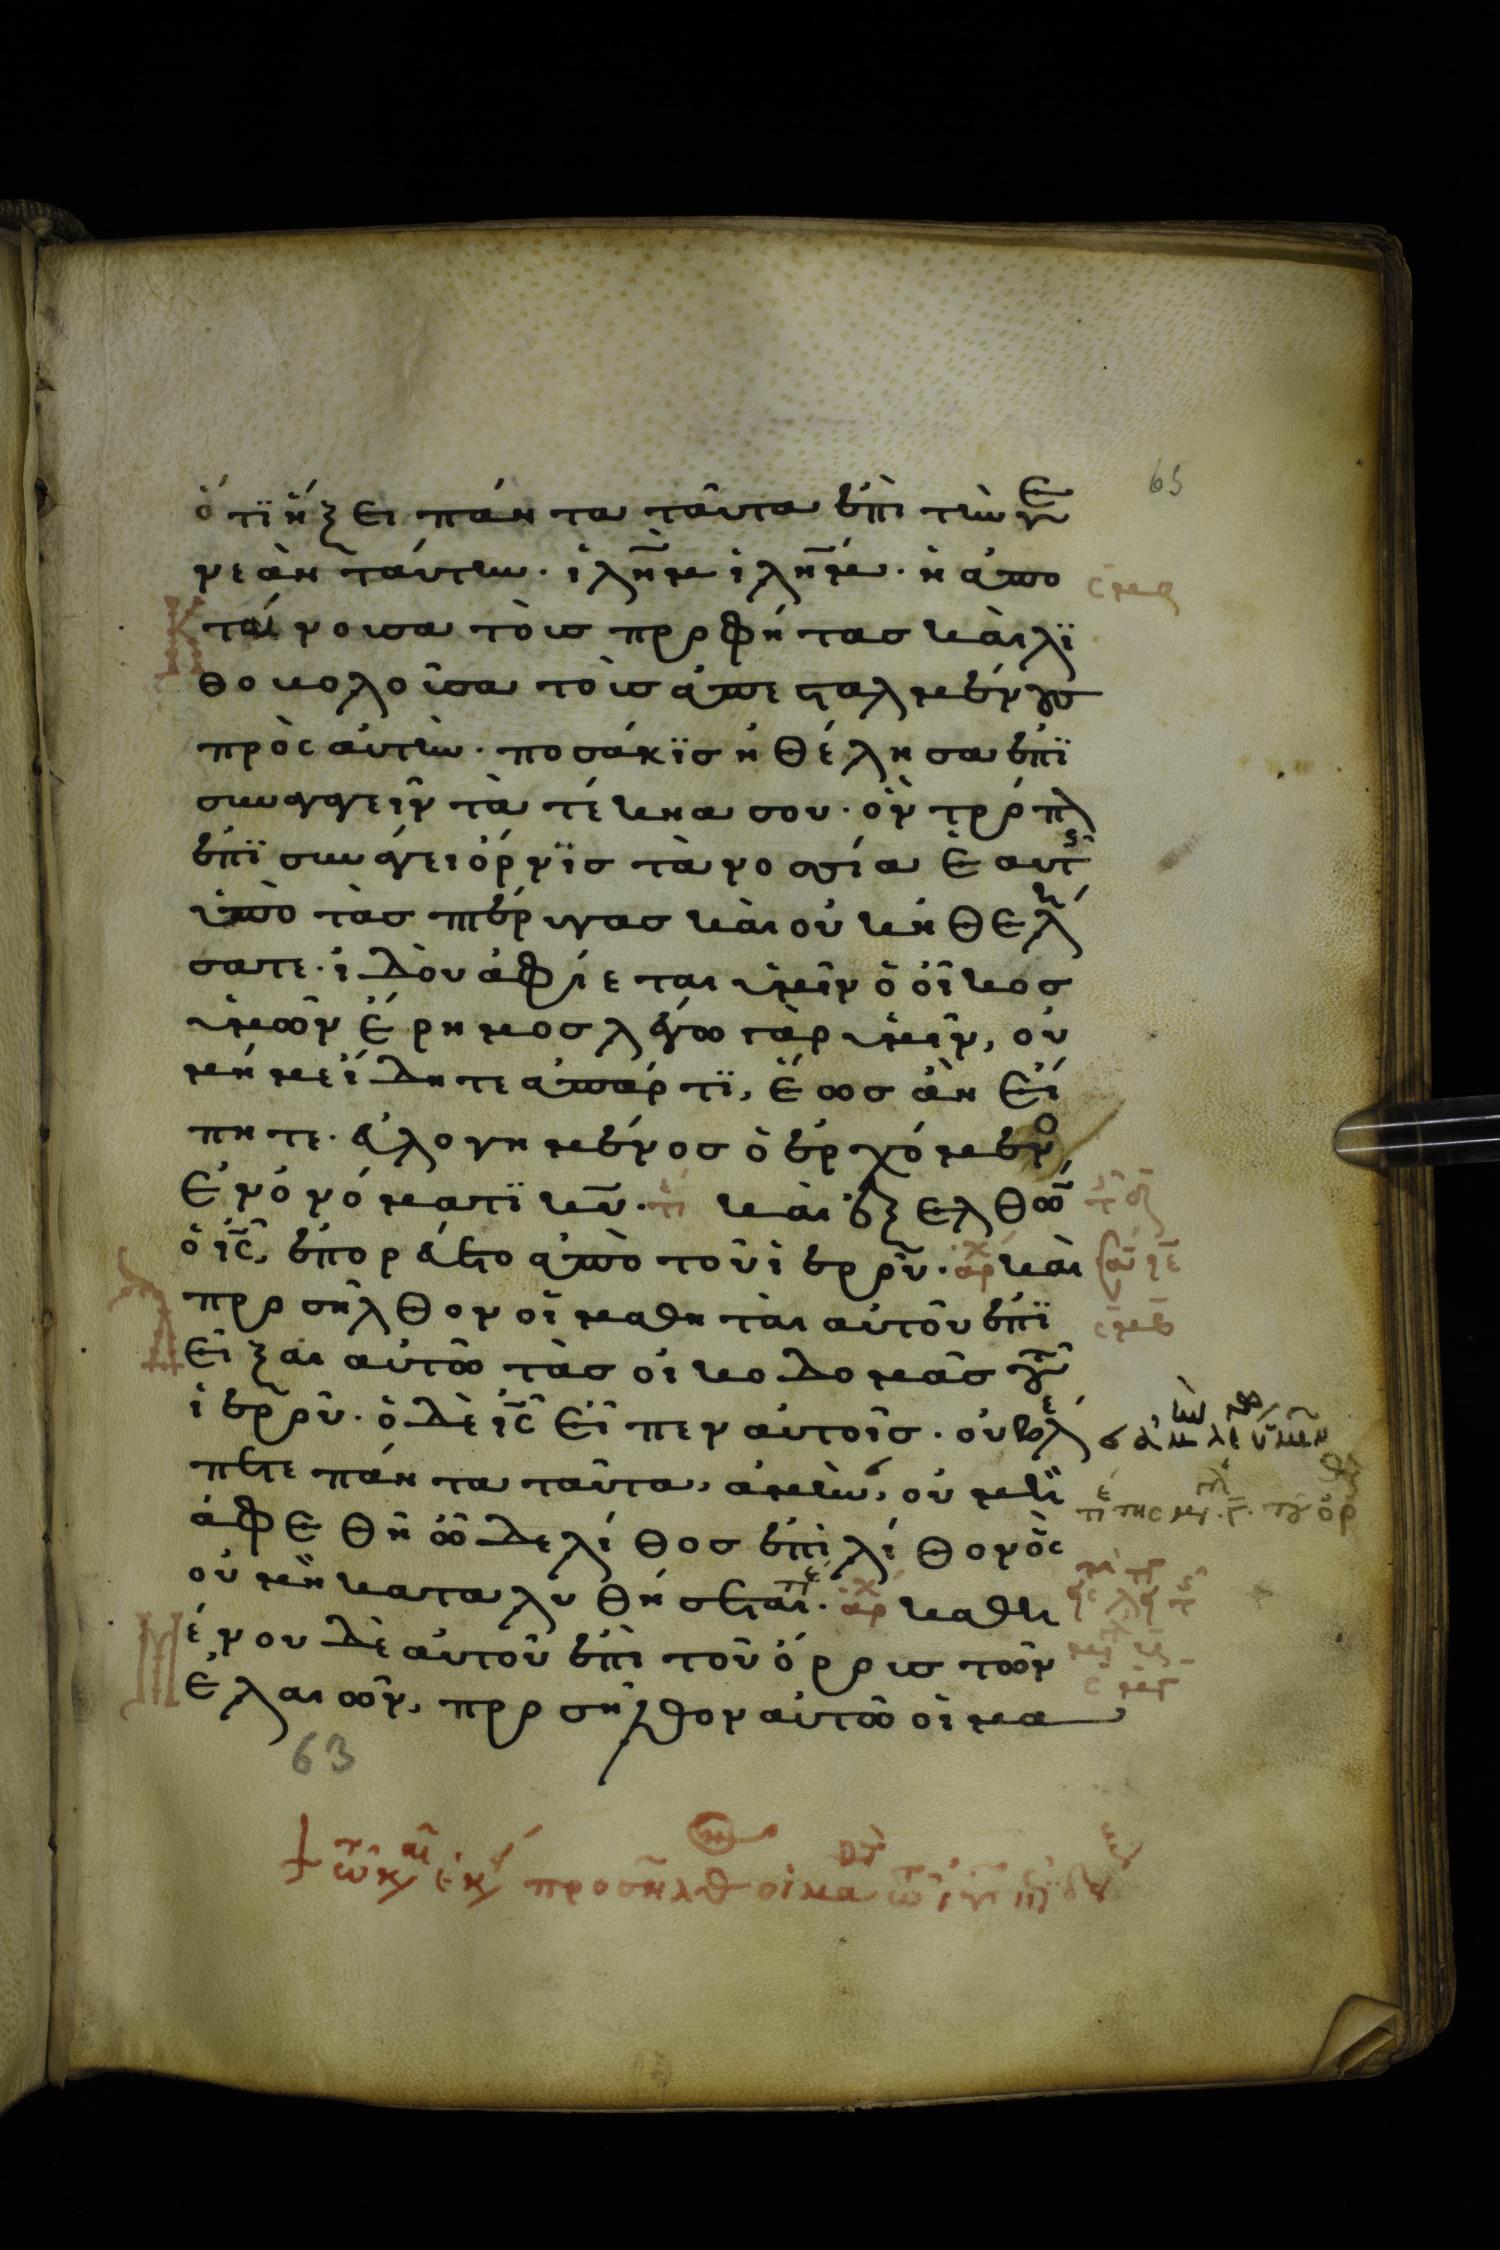 65
ὅτι ἥξει πάντα ταῦτα ἐπὶ τὴν γε
νεὰν ταύτην· ἰλη̅μ ἰλη̅μ· ἡ ἀπο
κταίνουσα τοὺς προφήτας καὶ λϊ
θοκολοῦσα τοὺς ἀπεσταλμένους
πρὸς αὐτὴν· ποσάκϊς ἠθέλησα ἐπϊ
συναγαγεῖν τὰ τέκνα σου· ὃν τρόπον
ἐπϊσυνάγει ὄρνϊς τὰ νοσσία ἑαυτῆς
ὑπὸ τὰς πτέρυγας καὶ οὐκ ἠθελή
σατε· ἰδοὺ ἀφίεται ὑμῖν ὁ οἶκος
ὑμῶν ἔρημος λέγω γὰρ ὑμῖν, οὐ
μή με ἴδητε ἀπάρτϊ, ἕως ἂν εἴ
πητε· εὐλογημένος ὁ ἐρχόμενος
ἐν ὀνόματϊ κ̅υ· τε καὶ ἐξελθὼν
ὁ ι̅ς, ἐπορεύετο ἀπὸ τοῦ ἱεροῦ· ἀρχ καὶ
προσῆλθον οἱ μαθηταὶ αὐτοῦ ἐπϊ
δεῖξαι αὐτῶ τὰς οἰκοδομὰς τοῦ
ἱεροῦ· ὁ δὲ ι̅ς εἶπεν αὐτοῖς· οὐ βλέ
πετε πάντα ταῦτα, ἀμὴν, οὐ μὴ
ἀφεθῆ ὧδε λίθος ἐπὶ λίθον ὃς
οὐ μὴ καταλυθήσεται· τε ἀρχ καθη
μένου δὲ αὐτοῦ ἐπὶ τοῦ ὄρους τῶν
ἐλαιῶν, προσῆλθον αὐτῶ οἱ μα
63